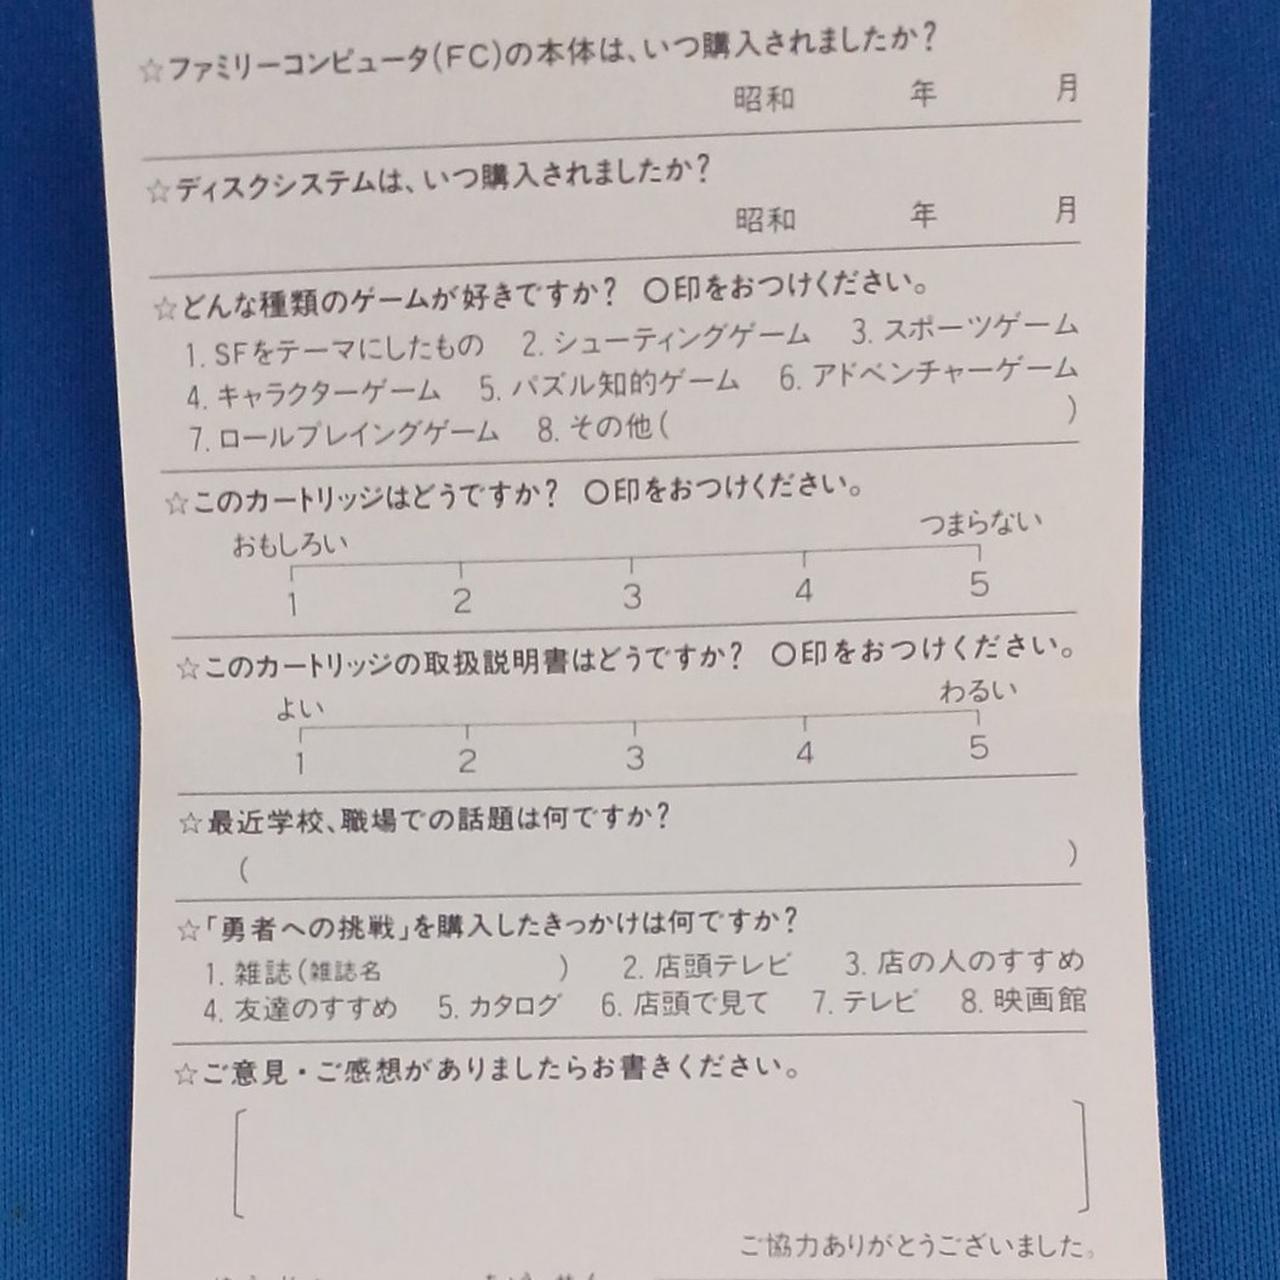 ☆ファミリーコンピュータ(FC)の本体は、いつ購入されましたか?
昭和　年　月
☆ディスクシステムは、いつ購入されましたか?
昭和　年　月
☆どんな種類のゲームが好きですか?　〇印をおつけください。
1. SFをテーマにしたもの　2. シューティングゲーム　3. スポーツゲーム
4. キャラクターゲーム　5. パズル知的ゲーム　6. アドベンチャーゲーム
7. ロールプレイングゲーム　8. その他(　)
☆このカートリッジはどうですか?　〇印をおつけください。
おもしろい　つまらない
1　2　3　4　5
☆このカートリッジの取扱説明書はどうですか?　〇印をおつけください。
よい　わるい
1　2　3　4　5
☆最近学校、職場での話題は何ですか?
(　)
☆「勇者への挑戦」を購入したきっかけは何ですか?
1. 雑誌(雑誌名　)　2. 店頭テレビ　3. 店の人のすすめ
4. 友達のすすめ　5. カタログ　6. 店頭で見て　7. テレビ　8. 映画館
☆ご意見・ご感想がありましたらお書きください。
ご協力ありがとうございました。